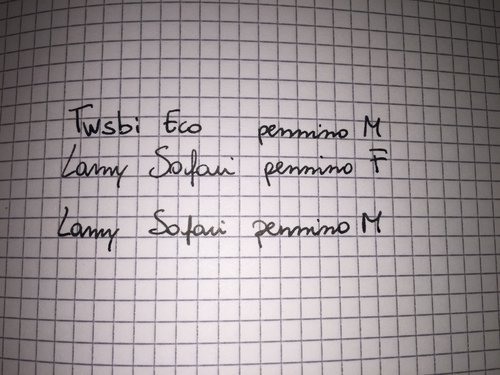 Twsbi Eco pennino M
Lamy Safari pennino F
Lamy Safari pennino M